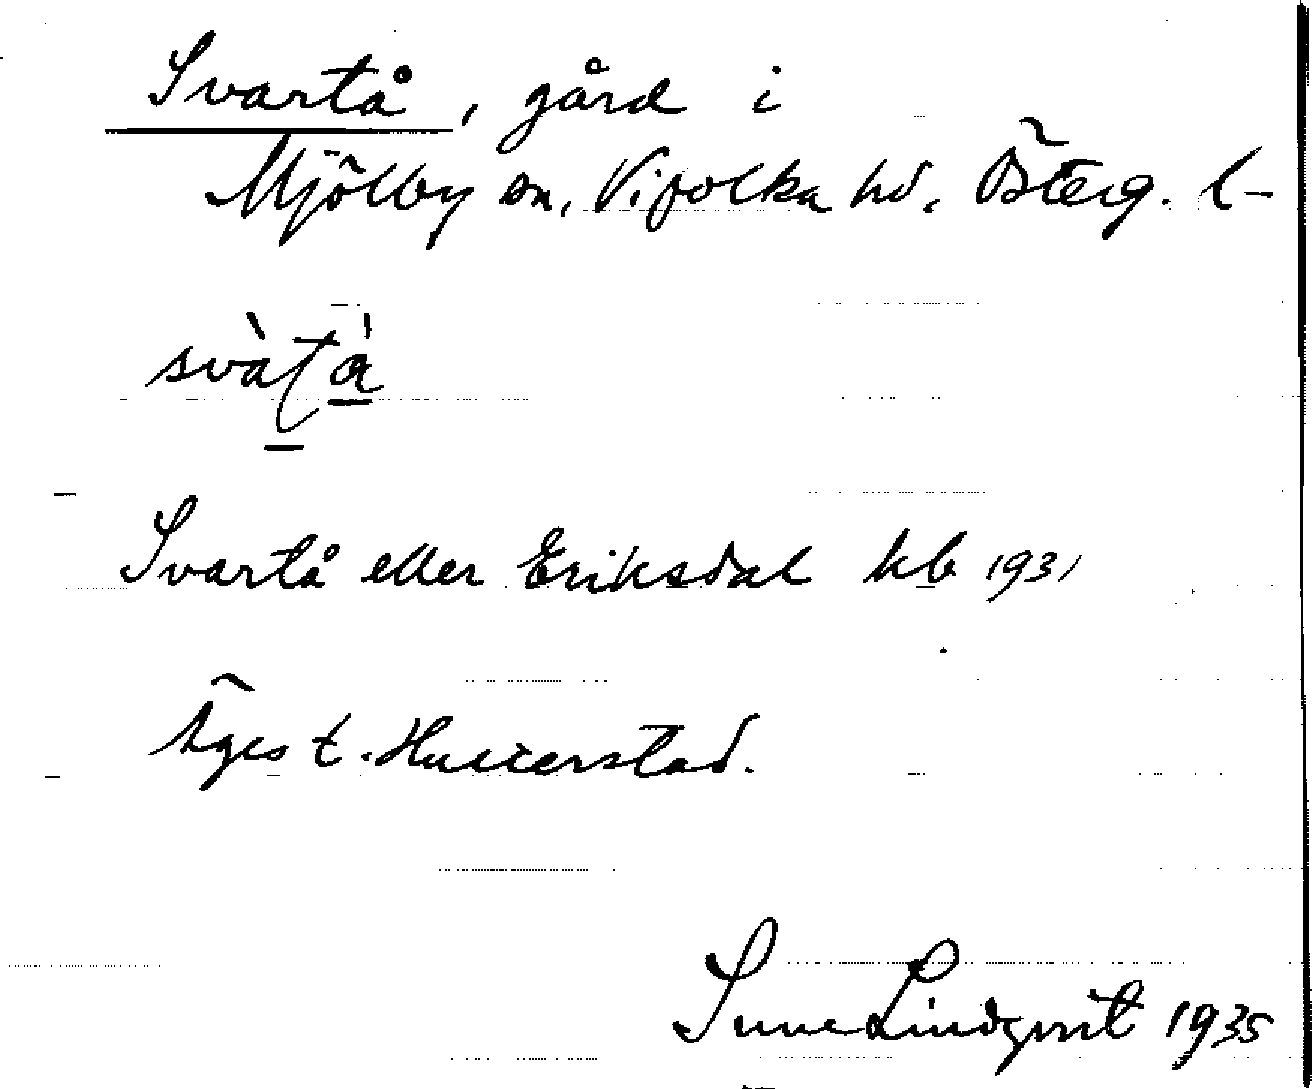 Svartå, gård i
Mjölby sn, Vifolka hd. Österg. l-
svàt̠à̠
Svartå eller Eriksdal kb 1931
Äges t. Hulterstad.
Sune Lindqvist 1935